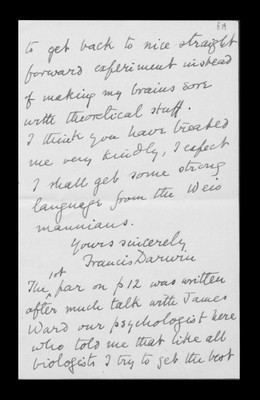 to get back to nice straight
forward experiment instead
of making my brains sore
with theoretical stuff.
I think you have treated
me very kindly, I expect
I shall get some strong
language from the Weis
mannians.
Yours sincerely
Francis Darwin
The 1st par on p 12 was written
after much talk with James
Ward our psychologist here
who told me that like all
biologists I try to get the best